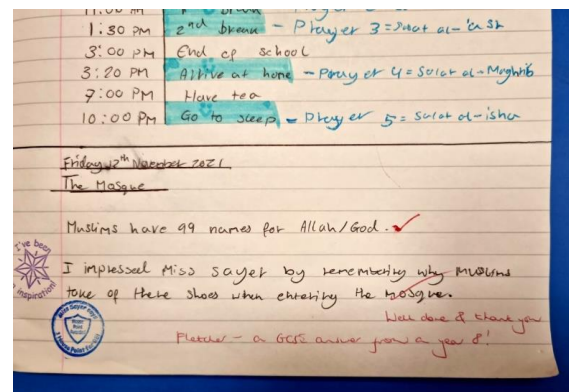 1:30 PM 2nd break - Prayer 3 = Salat al-'asr
3:00 PM End of school
3:20 PM Arrive at home - Prayer 4 = Salat al-Maghrib
7:00 PM Have tea
10:00 PM Go to sleep - Prayer 5 = Salat al-isha
Friday 12th November 2021
The Mosque
Muslims have 99 names for Allah/God.
I've been
inspirational
I impressed Miss Sayer by remembering why Muslims
take of there shoes when entering the mosque.
Well done & thank you
Fletcher - a GCSE answer from a year 8!
Miss Sayer says
House Point